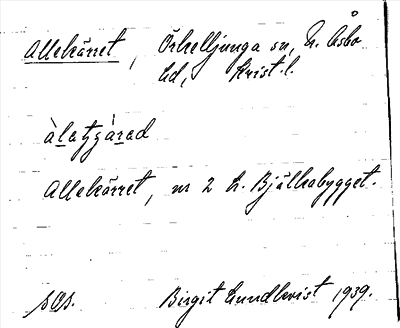 Allekärret, Örkelljunga sn, N. Åsbo
hd, Krist.l.
àlatzgàrad
Allekärret, nr 2 L. Bjälkabygget.
SOS. Birgit Lundkvist 1939.